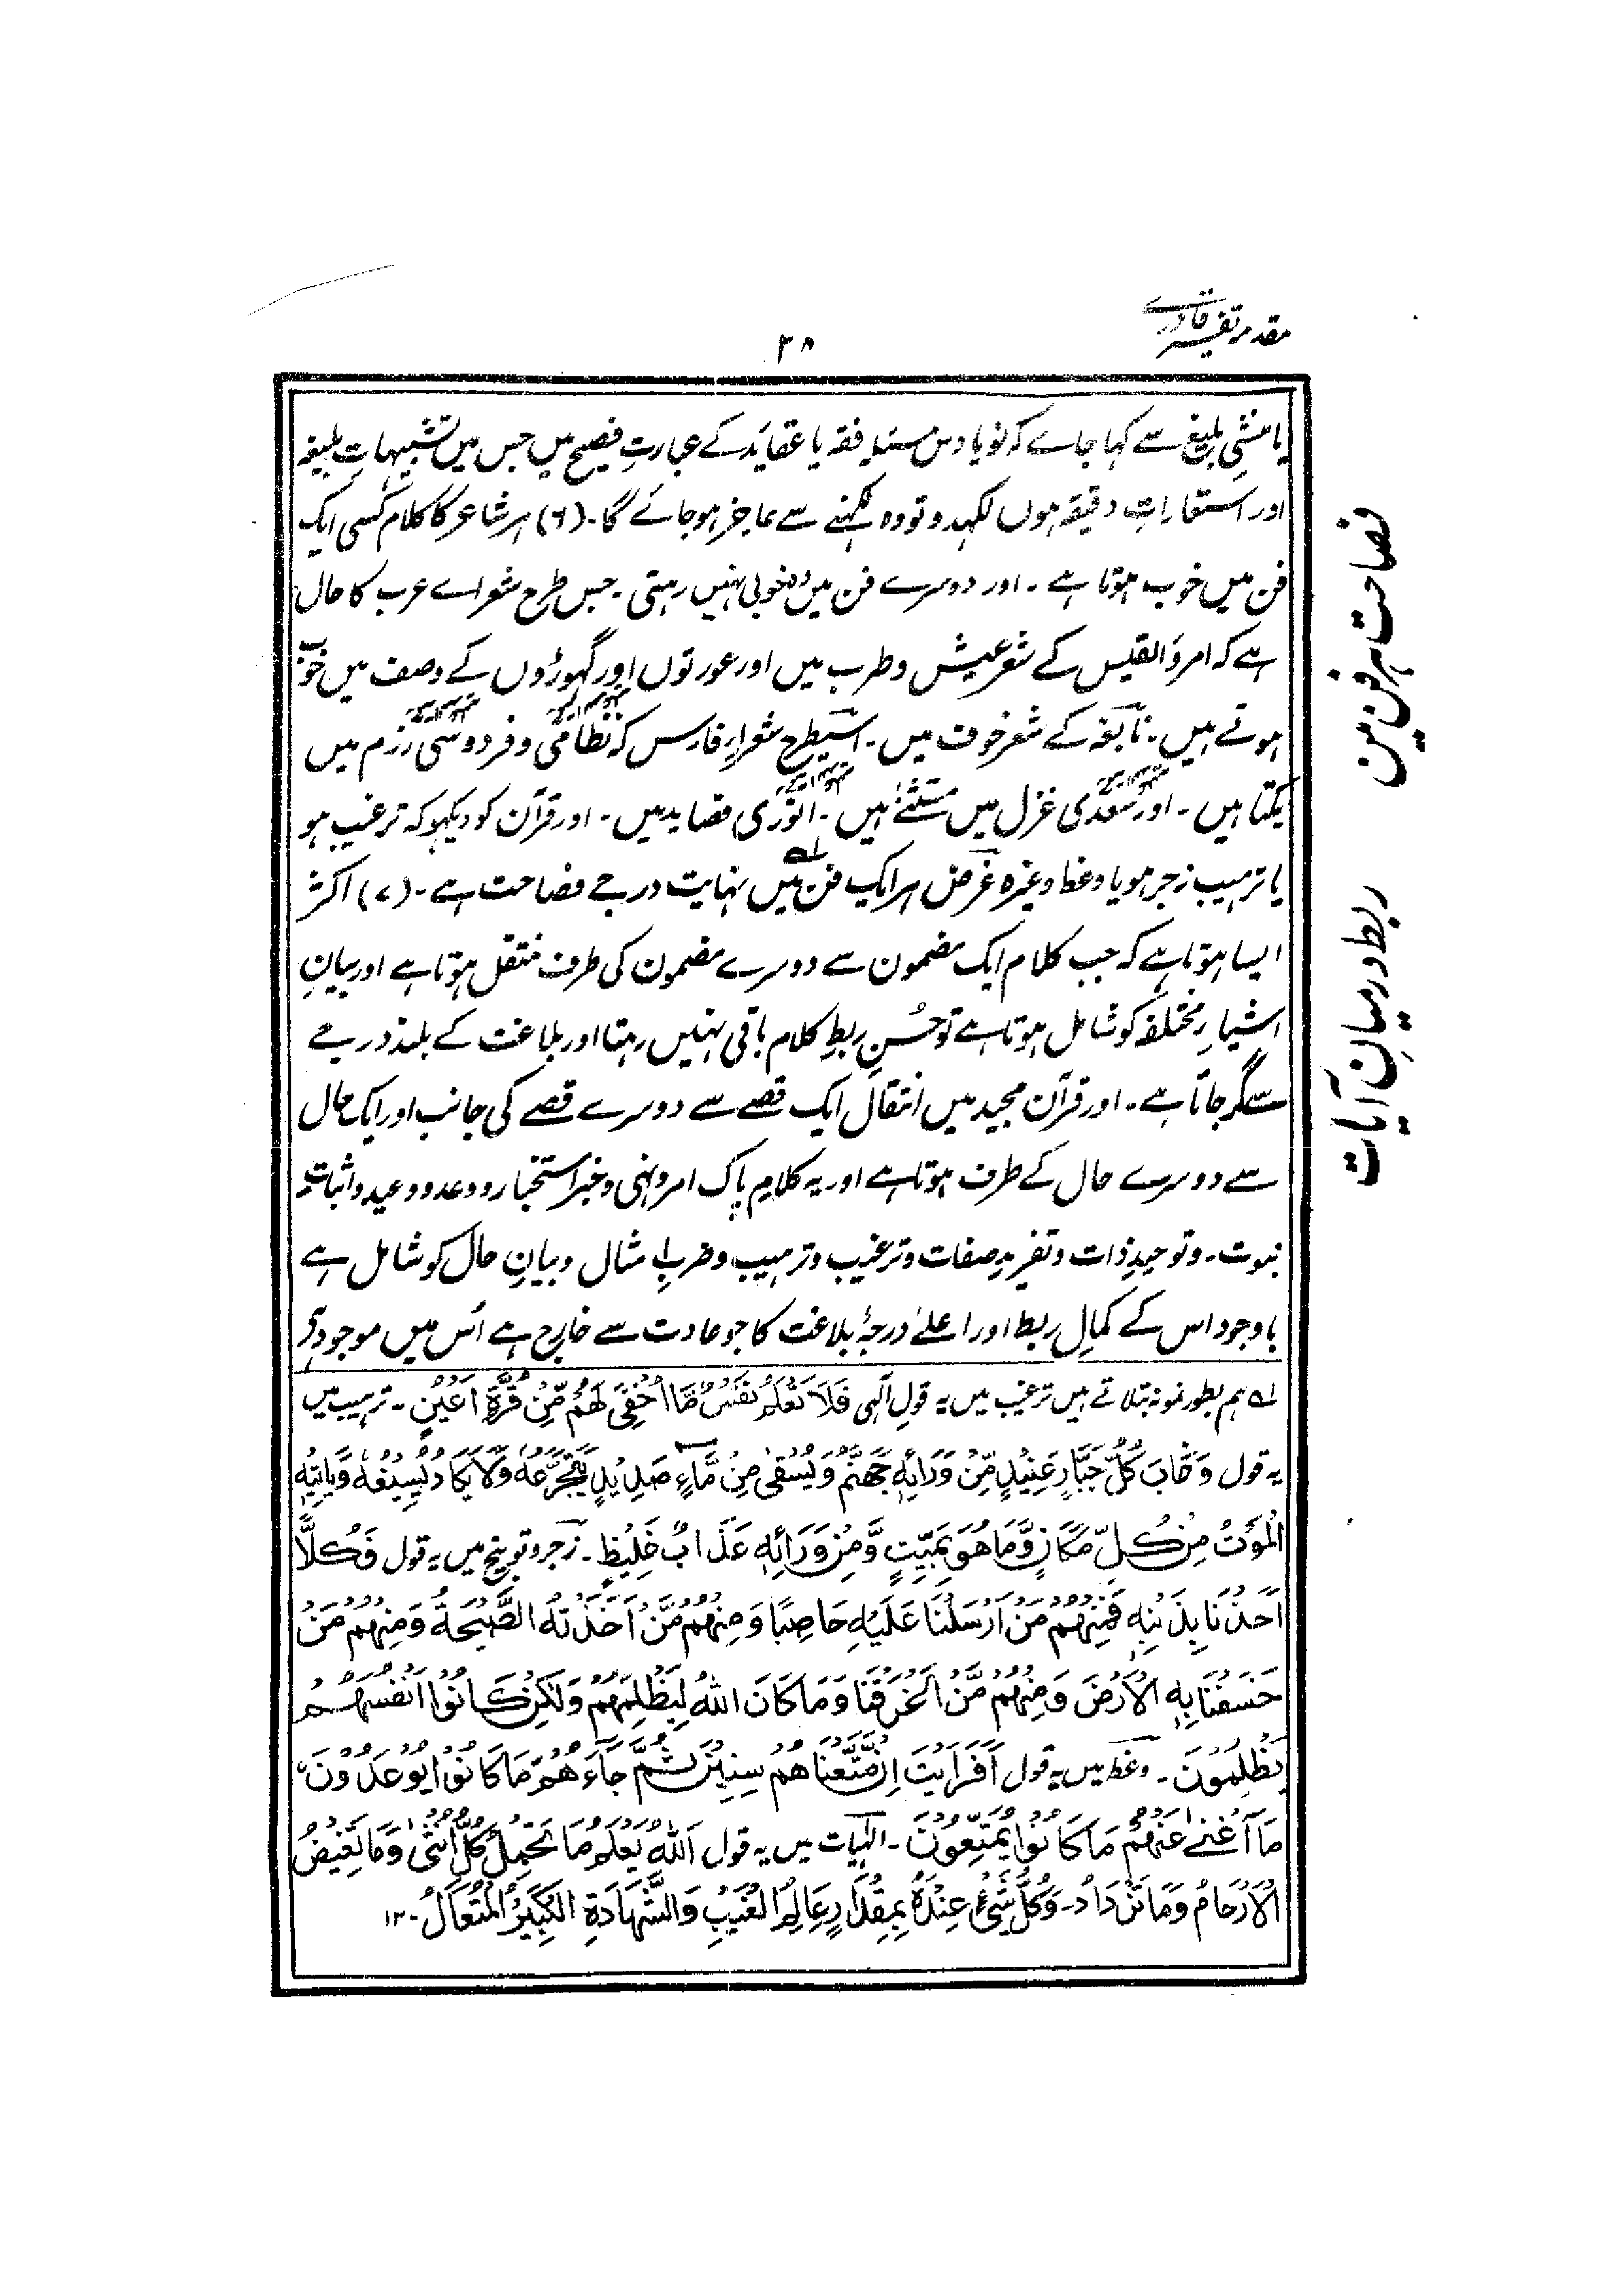 مقدمہ تفسیر قادری
۳۸
یا منشیِ بلیغ سے کہا جاے کہ نو یا دس مسئلے فقہ یا عقاید کے عبارتِ فصیح میں جس میں تشبیہاتِ بلیغہ
اور استعاراتِ دقیقہ ہوں لکھدو تو وہ لکہنے سے عاجز ہو جائے گا۔ (۶) ہر شاعر کا کلام کسی ایک
فن میں خوب ہوتا ہے ۔ اور دوسرے فن میں وہ خوبی نہیں رہتی ۔ جس طرح شعراے عرب کا حال
ہے کہ امرؤ القیس کے شعر عیش و طرب میں اور عورتوں اور گہوڑوں کے وصف میں خوب
ہوتے ہیں ۔ نابغہ کے شعر خوف میں ۔ اسیطرح شعراءِ فارس کہ نظامی و فردوسی رزم میں
یکتا ہیں ۔ اور سعدی غزل میں مستثنےٰ ہیں ۔ انوری قصاید میں ۔ اور قرآن کو دیکہو کہ ترغیب ہو
یا ترہیب زجر ہو یا وعظ وغیرہ غرض ہر ایک فن میں نہایت درجے فصاحت ہے ۔ (۷) اکثر
ایسا ہوتا ہے کہ جب کلام ایک مضمون سے دوسرے مضمون کی طرف منتقل ہوتا ہے اور بیانِ
اشیاءِ مختلفہ کو شامل ہوتا ہے تو حُسنِ ربطِ کلام باقی نہیں رہتا اور بلاغت کے بلند درجے
سے گر جاتا ہے ۔ اور قرآن مجید میں انتقال ایک قصے سے دوسرے قصے کی جانب اور ایک حال
سے دوسرے حال کے طرف ہوتا ہے اور یہ کلامِ پاک امر و نہی و خبر و استخبار و وعدہ و وعید و اثباتِ
نبوت ۔ و توحیدِ ذات و تفریدِ صفات و ترغیب و ترہیب و ضربِ امثال و بیانِ حال کو شامل ہے
باوجود اس کے کمالِ ربط اور اعلےٰ درجۂ بلاغت کا جو عادت سے خارج ہے اُس میں موجود ہی
فصاحت ہر فن مین
ربط درمیانِ آیات
لہ ہم بطور نمونہ بتلاتے ہیں ترغیب میں یہ قول الٰہی فَلَا تَعْلَمُ نَفْسٌ مَّا اُخْفِیَ لَهُمْ مِّنْ قُرَّةِ اَعْیُنٍ ۔ ترہیب میں
یہ قول وَخَابَ كُلُّ جَبَّارٍ عَنِیْدٍ مِّنْ وَرَائِهٖ جَهَنَّمُ وَیُسْقٰی مِنْ مَّاءٍ صَدِیْدٍ یَّتَجَرَّعُهٗ وَلَا یَكَادُ یُسِیْغُهٗ وَیَاْتِیْهِ
الْمَوْتُ مِنْ كُلِّ مَكَانٍ وَّمَا هُوَ بِمَیِّتٍ وَّمِنْ وَرَائِهٖ عَذَابٌ غَلِیْظٌ ۔ زجر و توبیخ میں یہ قول فَكُلًّا
اَخَذْنَا بِذَنْبِهٖ فَمِنْهُمْ مَنْ اَرْسَلْنَا عَلَیْهِ حَاصِبًا وَمِنْهُمْ مَّنْ اَخَذَتْهُ الصَّیْحَةُ وَمِنْهُمْ مَنْ
خَسَفْنَا بِهِ الْاَرْضَ وَمِنْهُمْ مَّنْ اَغْرَقْنَا وَمَا كَانَ اللهُ لِیَظْلِمَهُمْ وَلٰكِنْ كَانُوْا اَنْفُسَهُمْ
یَظْلِمُوْنَ ۔ وعظ میں یہ قول اَفَرَاَیْتَ اِنْ مَّتَّعْنَاهُمْ سِنِیْنَ ثُمَّ جَآءَهُمْ مَا كَانُوْا یُوْعَدُوْنَ
مَا اَغْنٰی عَنْهُمْ مَا كَانُوْا یُمَتَّعُوْنَ ۔ الٰہیات میں یہ قول اَللهُ یَعْلَمُ مَا تَحْمِلُ كُلُّ اُنْثٰی وَمَا تَغِیْضُ
الْاَرْحَامُ وَمَا تَزْدَادُ ۔ وَكُلُّ شَیْءٍ عِنْدَهٗ بِمِقْدَارٍ عَالِمُ الْغَیْبِ وَالشَّهَادَةِ الْكَبِیْرُ الْمُتَعَالُ ۱۲۰